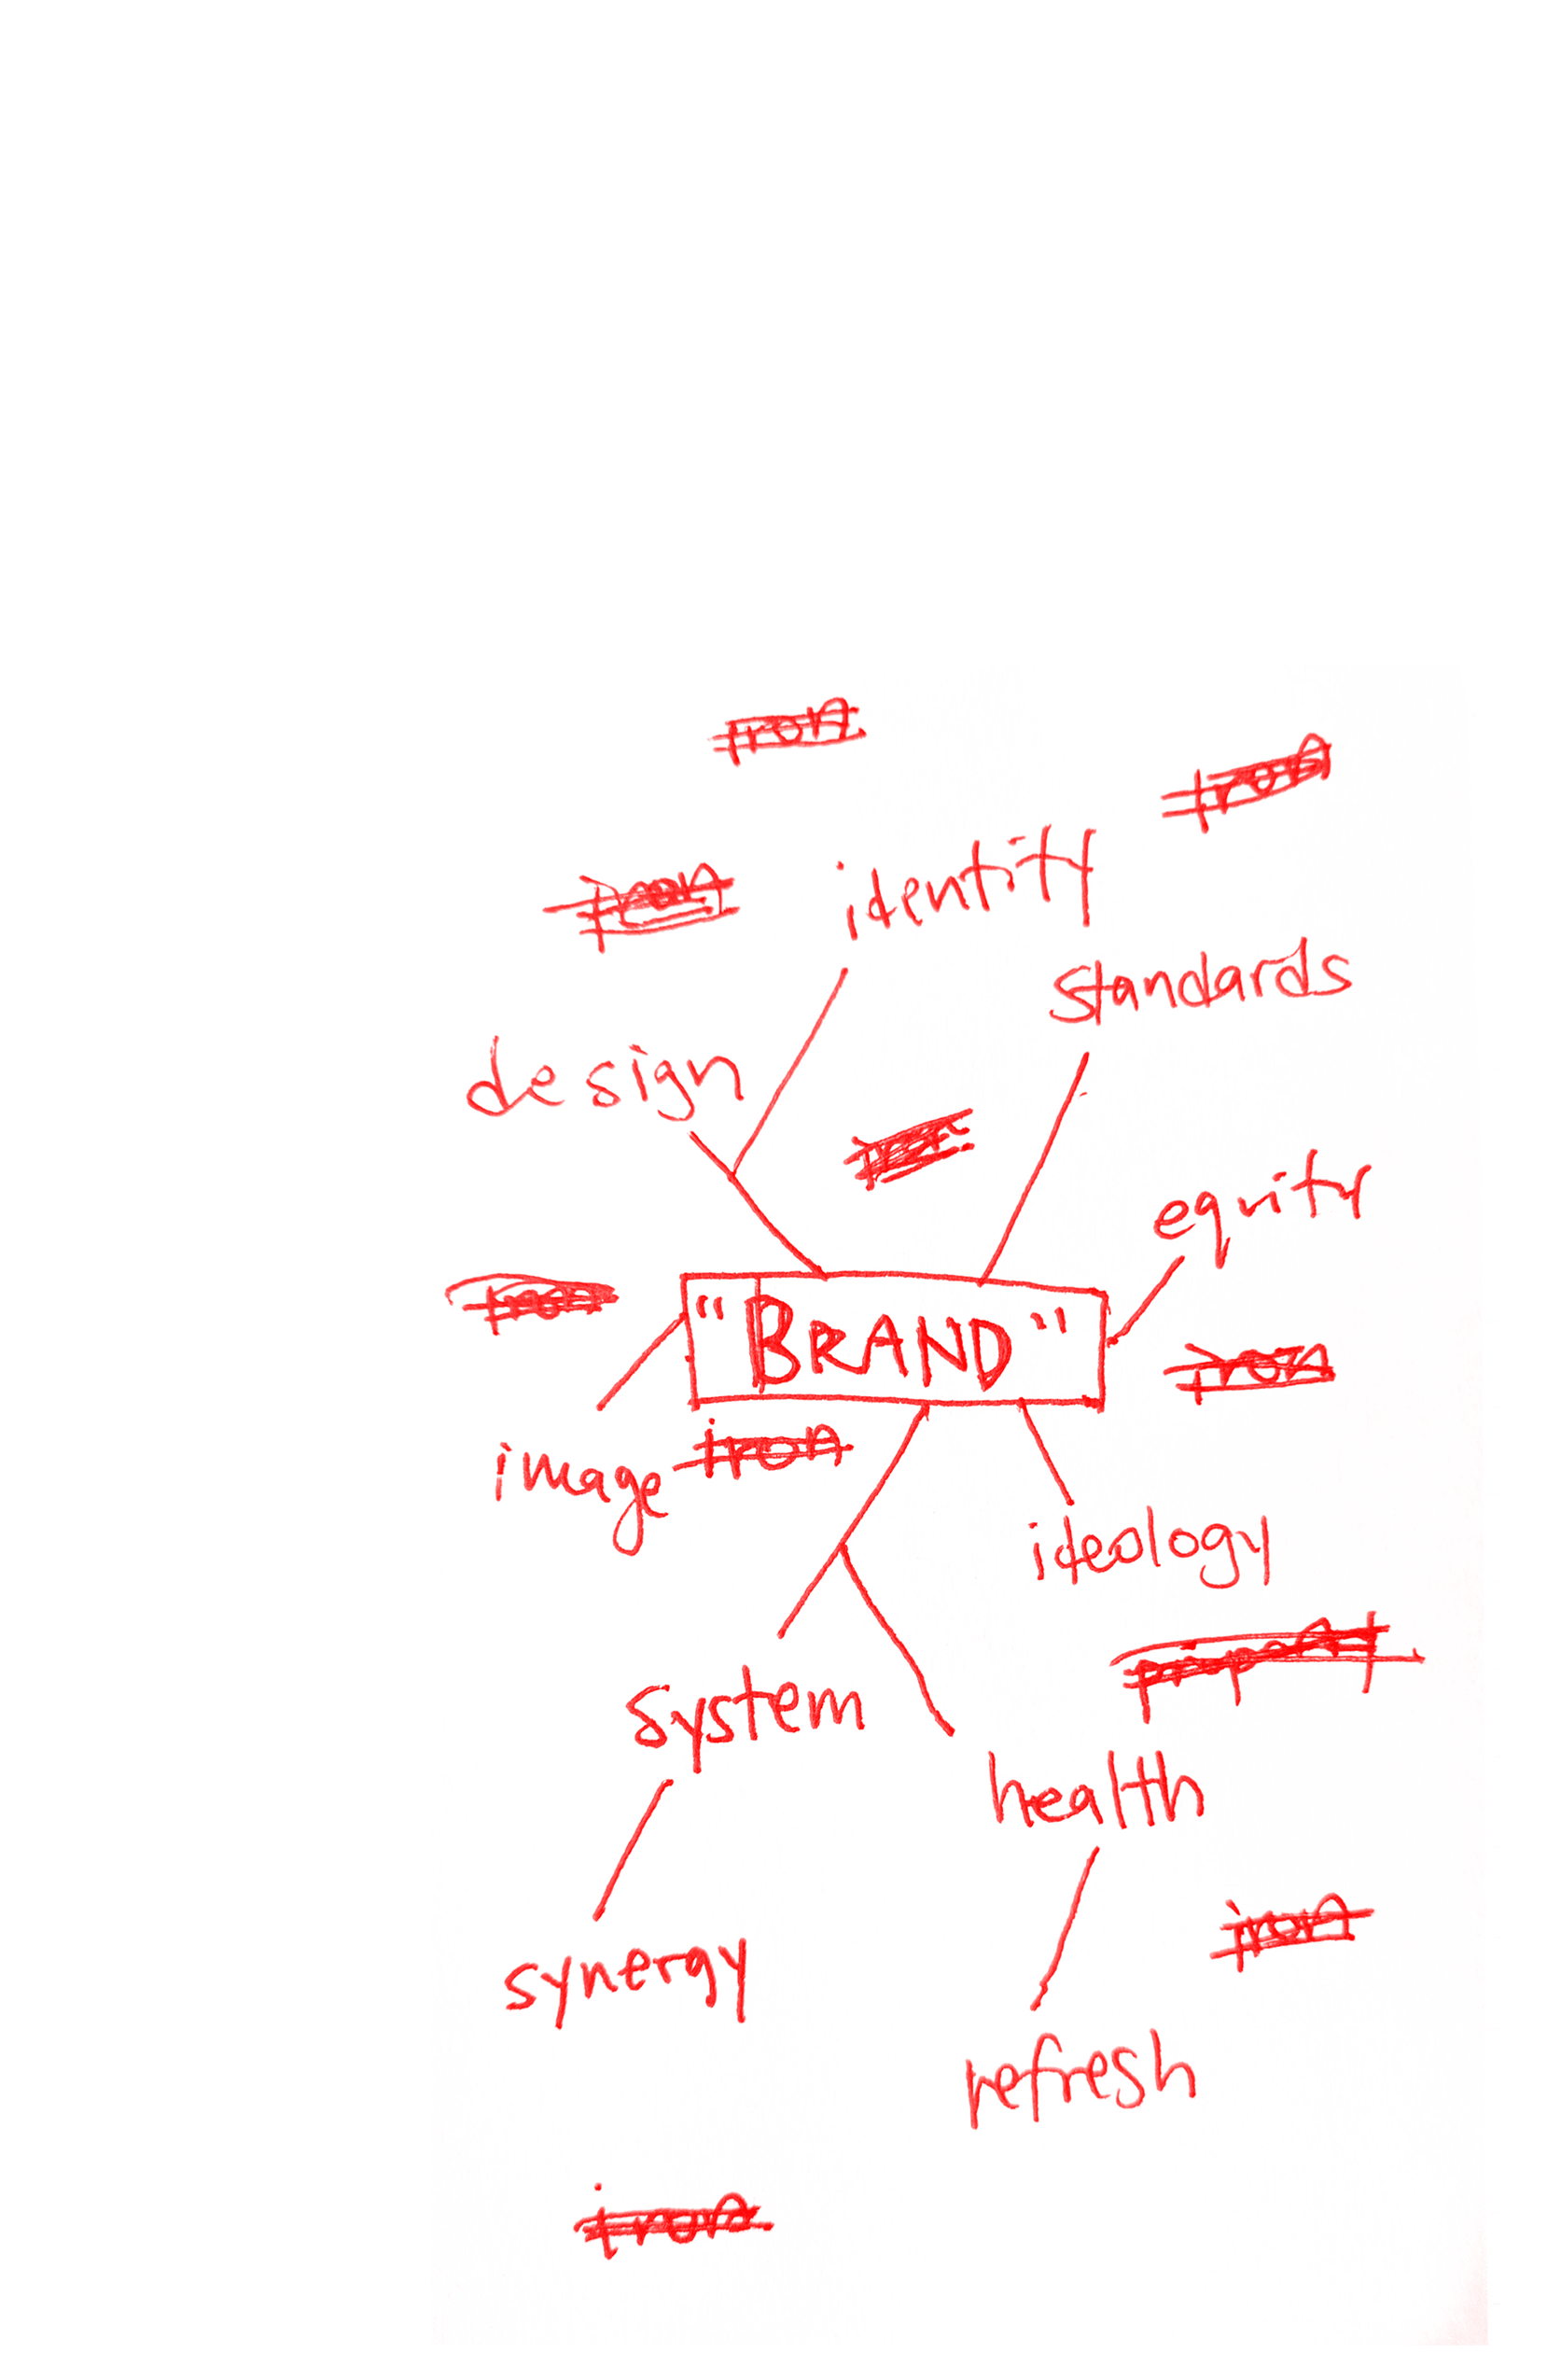 iron
iron
iron
identity
standards
design
equity
iron
"BRAND"
iron
image iron
ideology
system
health
iron
synergy
refresh
iron